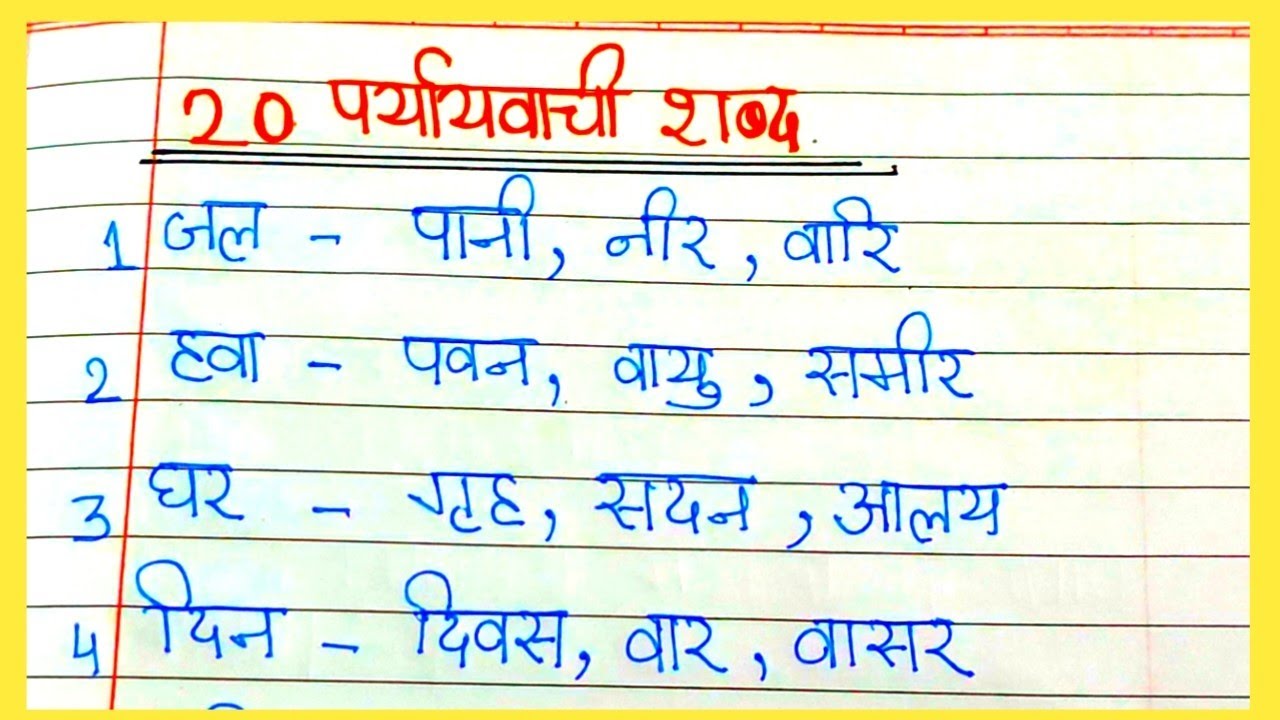 20 पर्यायवाची शब्द
1 जल - पानी, नीर, वारि
2 हवा - पवन, वायु, समीर
3 घर - गृह, सदन, आलय
4 दिन - दिवस, वार, वासर